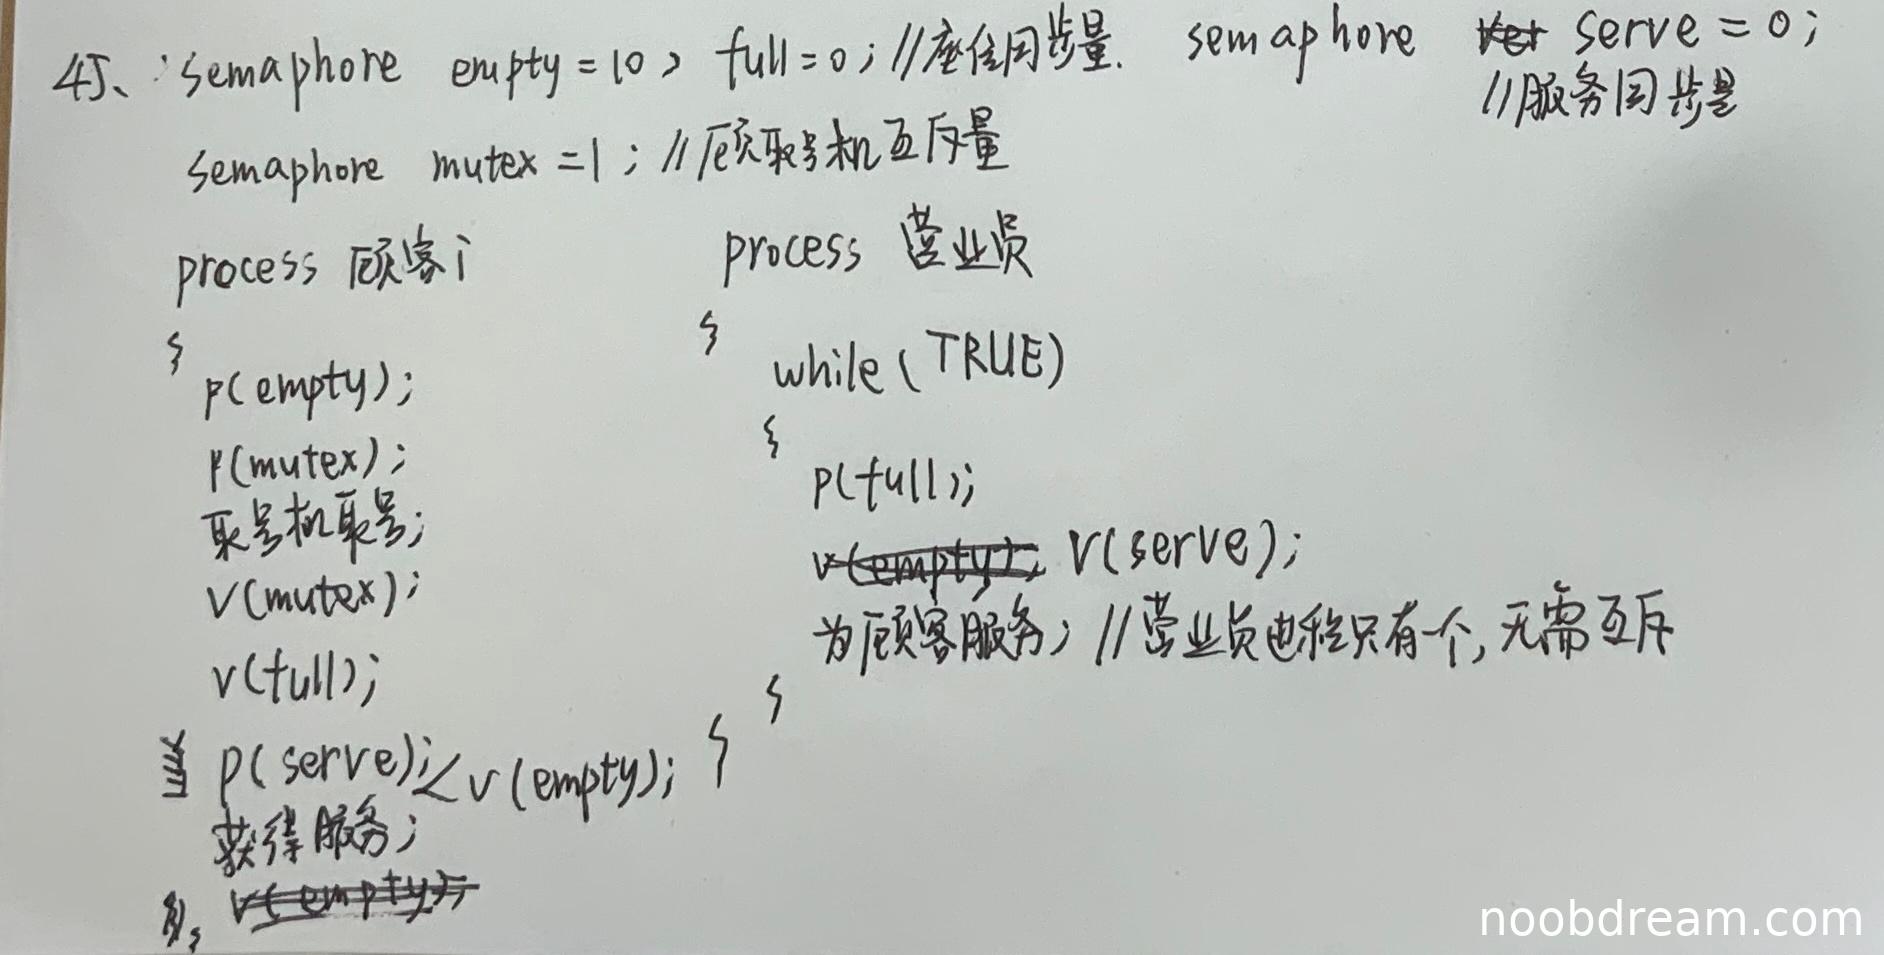 45、semaphore empty=10, full=0; //座位同步量. semaphore serve=0;
//服务同步量
semaphore mutex=1; //顾取号机互斥量
process 顾客i
{
p(empty);
p(mutex);
取号机取号;
v(mutex);
v(full);
p(serve); v(empty);
获得服务;
v(empty);
}
process 营业员
{
while(TRUE)
{
p(full);
v(empty); v(serve);
为顾客服务; //营业员进程只有一个,无需互斥
}
}
noobdream.com